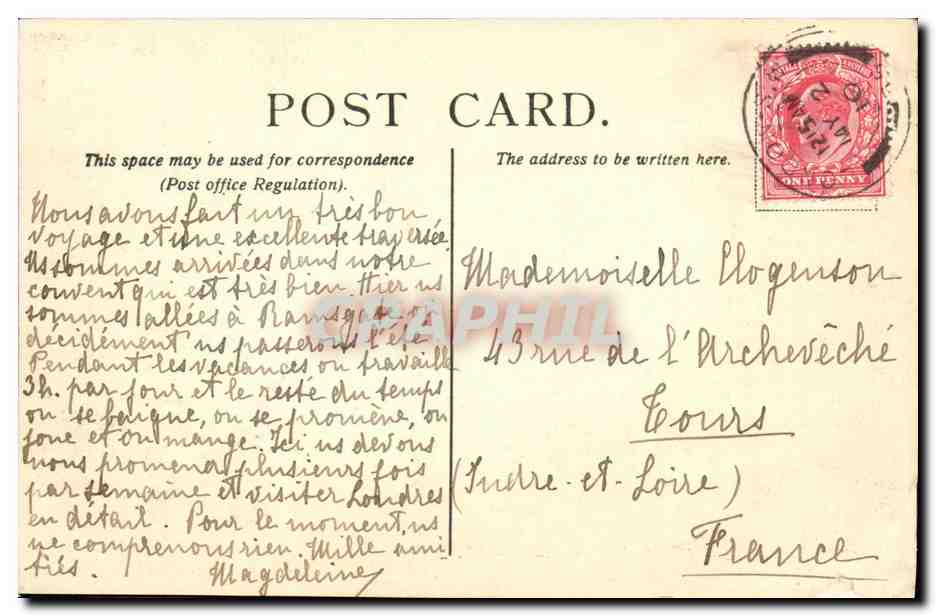 POST CARD.
This space may be used for correspondence
(Post office Regulation).
The address to be written here.
ONE PENNY
12 15 AM
MAY 2
10
Nous avons fait un très bon
voyage et une excellente traversée
Ns sommes arrivées dans notre
couvent qui est très bien. Hier ns
sommes allées à Ramsgate où
décidément ns passerons l'été
Pendant les vacances on travaille
3h. par jour et le reste du temps
on se baigne, on se promène, on
joue et on mange. Ici ns devons
nous promener plusieurs fois
par semaine et visiter Londres
en détail. Pour le moment, ns
ne comprenons rien. Mille ami-
tiés. Magdeleine
Mademoiselle Clogenson
43 rue de l'Archevêché
Tours
(Indre-et-Loire)
France
CPAPHIL